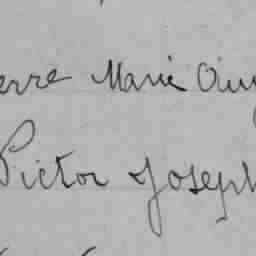 erre Marie
Victor Joseph